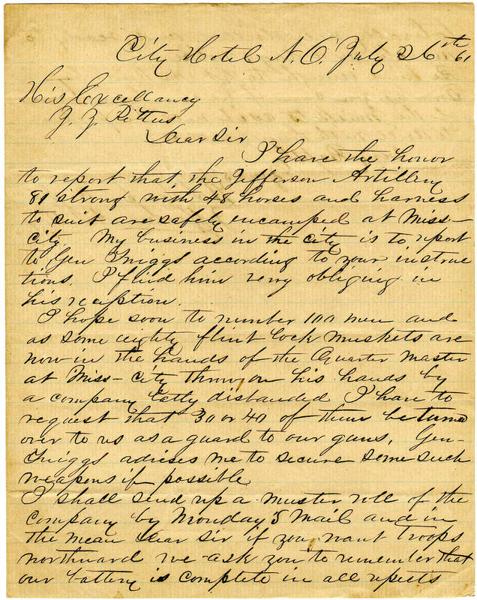 City Hotel N. O. July 26th 61
His Excellancy
J. J. Pettus
Dear Sir
I have the honor
to report that the Jefferson Artillery
81 strong with 48 horses and harness
to suit are safely encamped at Miss-
City My business in the city is to report
to Gen Twiggs according to your instruc
tions. I find him very obliging in
his reception.
I hope soon to number 100 men and
as some eighty flint lock muskets are
now in the hands of the Quarter Master
at Miss- City thrown on his hands by
a company lately disbanded I have to
request that 30 or 40 of them be turned
over to us as a guard to our guns. Gen-
Twiggs advises me to secure some such
weapons if possible
I shall send up a muster roll of the
company by Monday's Mail and in
the mean Dear Sir if you want troops
northward we ask you to remember that
our battery is complete in all respects